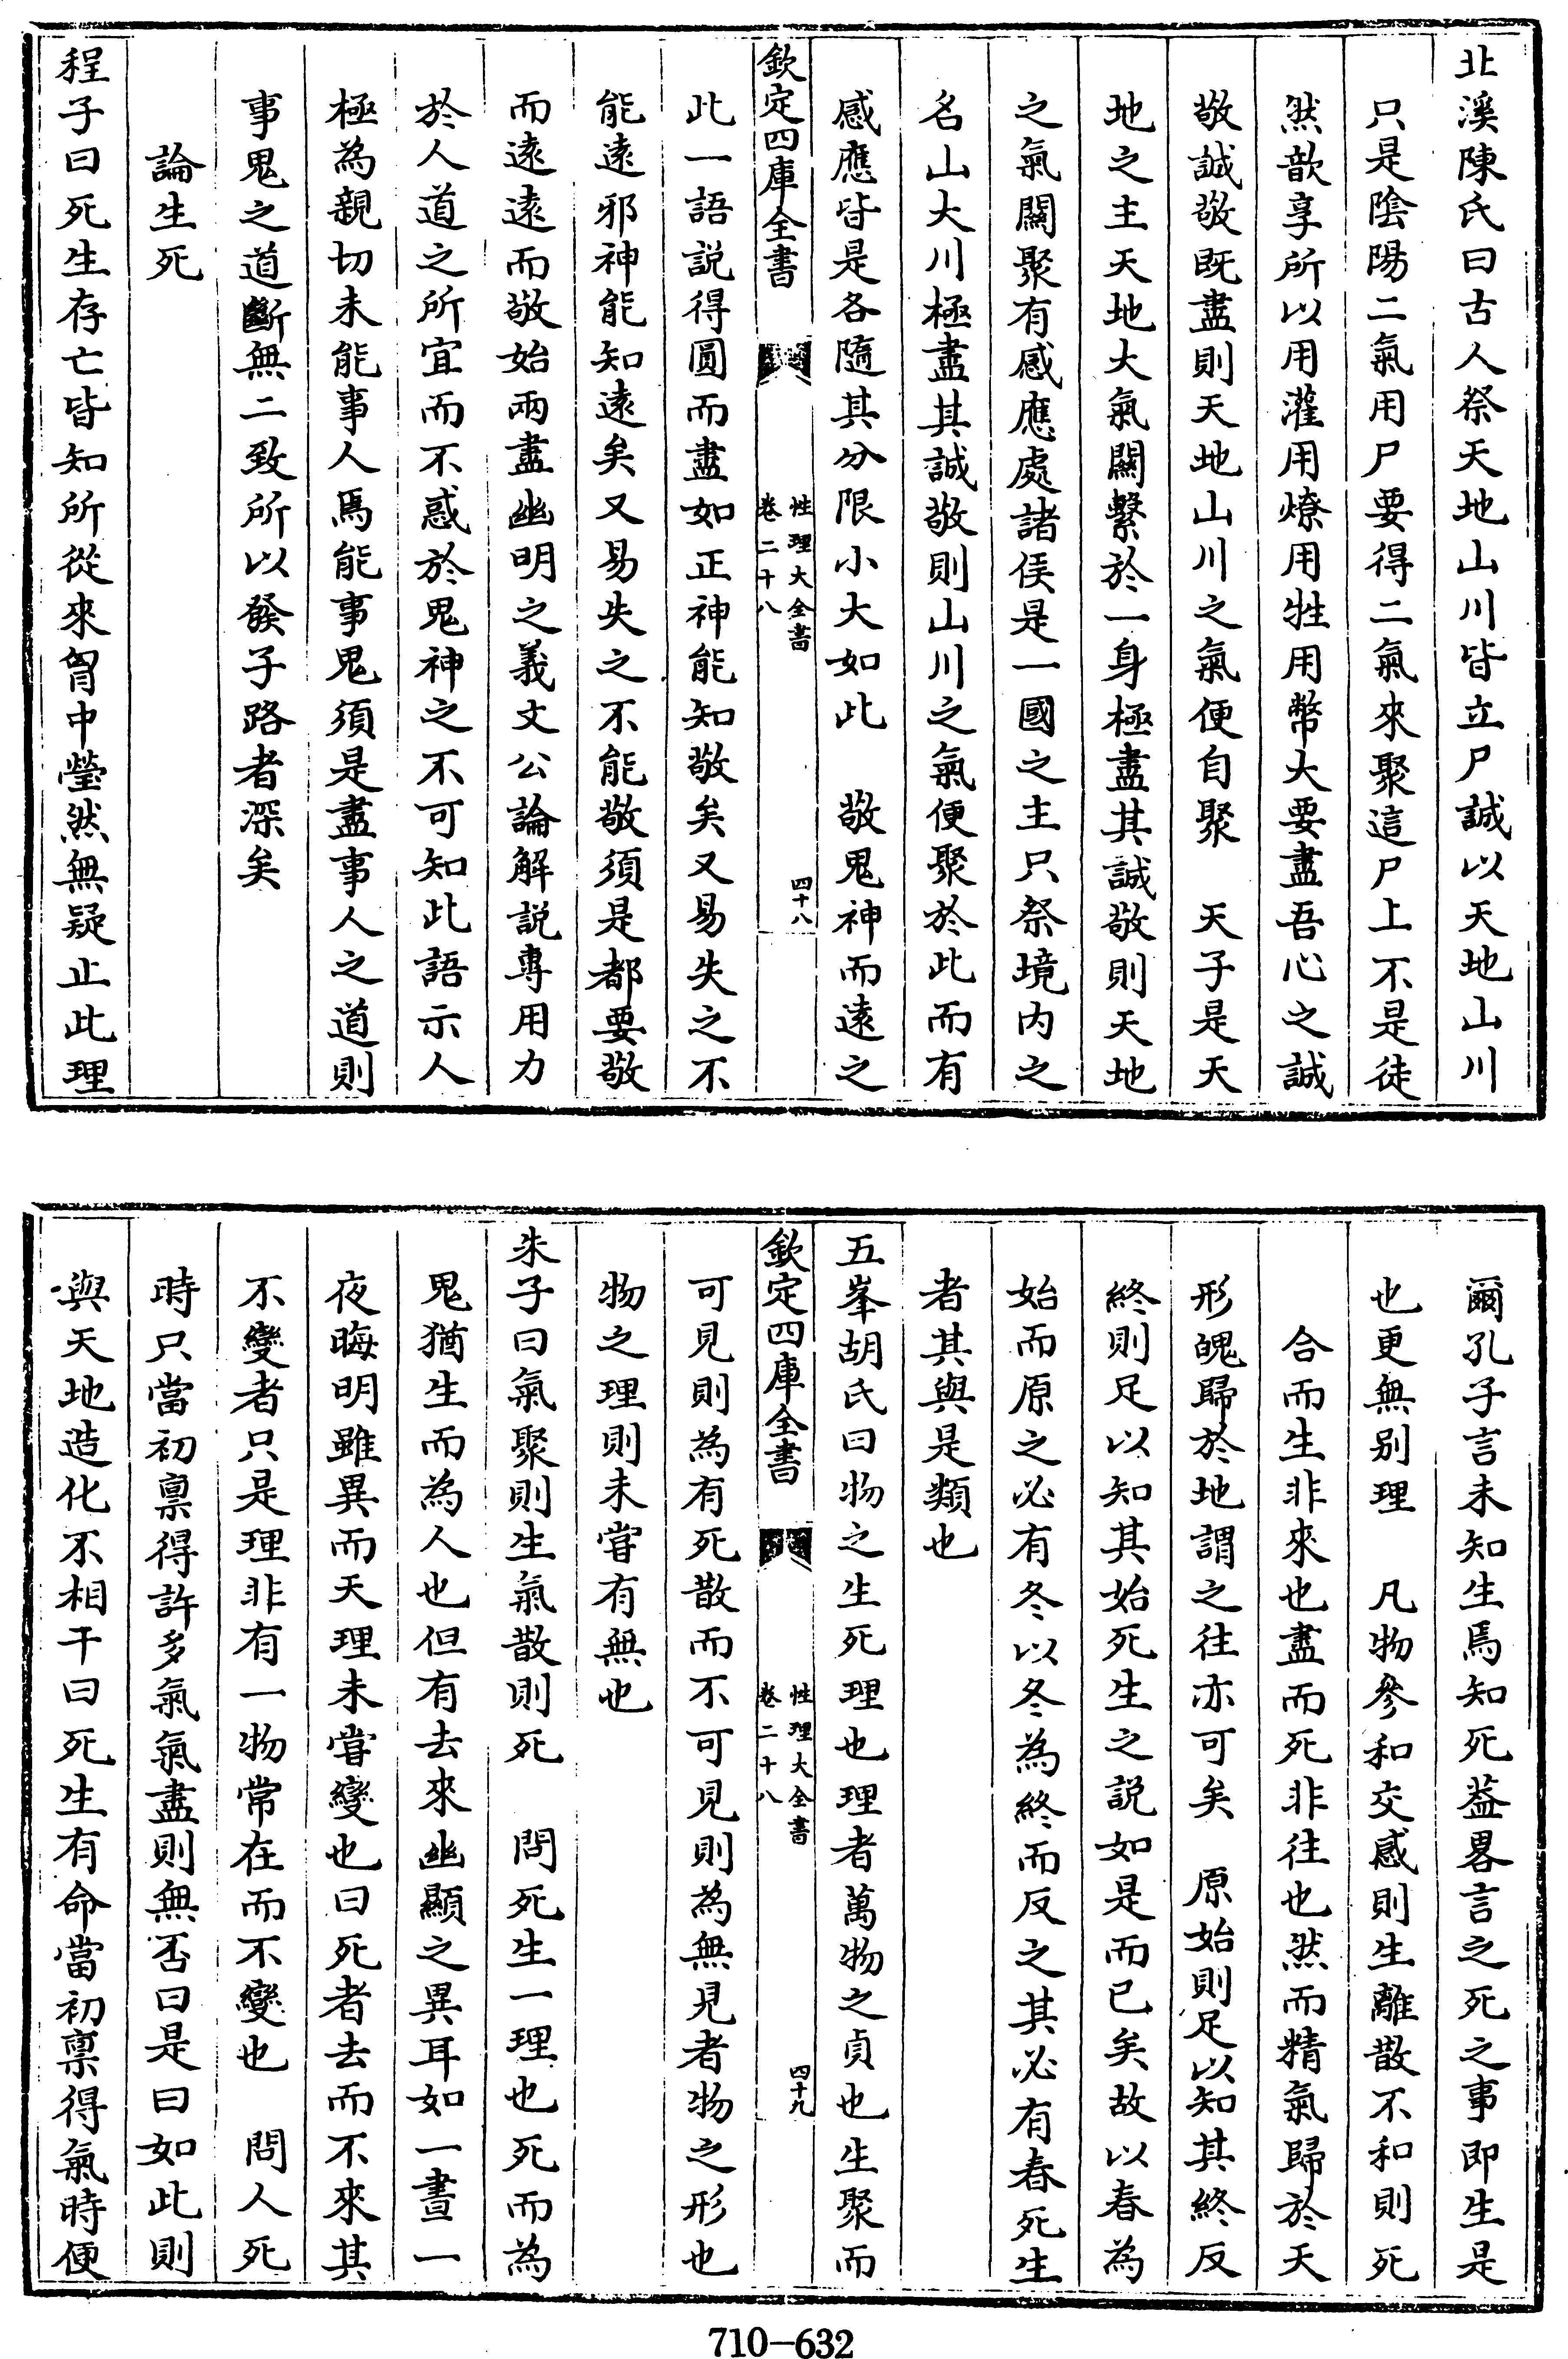 北溪陳氏曰古人祭天地山川皆立尸誠以天地山川
只是陰陽二氣用尸要得二氣來聚這尸上不是徒
然歆享所以用灌用燎用牲用幣大要盡吾心之誠
敬誠敬既盡則天地山川之氣便自聚　天子是天
地之主天地大氣關繫於一身極盡其誠敬則天地
之氣關聚有感應處諸侯是一國之主只祭境内之
名山大川極盡其誠敬則山川之氣便聚於此而有
感應皆是各隨其分限小大如此　敬鬼神而遠之
欽定四庫全書
性理大全書
卷二十八
四十八
此一語説得圓而盡如正神能知敬矣又易失之不
能遠邪神能知遠矣又易失之不能敬須是都要敬
而遠遠而敬始兩盡幽明之義文公論解説專用力
於人道之所宜而不惑於鬼神之不可知此語示人
極為親切未能事人焉能事鬼須是盡事人之道則
事鬼之道斷無二致所以發子路者深矣
論生死
程子曰死生存亡皆知所從來胷中瑩然無疑止此理
爾孔子言未知生焉知死葢畧言之死之事即生是
也更無别理　凡物參和交感則生離散不和則死
合而生非來也盡而死非往也然而精氣歸於天
形魄歸於地謂之往亦可矣　原始則足以知其終反
終則足以知其始死生之説如是而已矣故以春為
始而原之必有冬以冬為終而反之其必有春死生
者其與是類也
五峯胡氏曰物之生死理也理者萬物之貞也生聚而
欽定四庫全書
性理大全書
卷二十八
四十九
可見則為有死散而不可見則為無見者物之形也
物之理則未嘗有無也
朱子曰氣聚則生氣散則死　問死生一理也死而為
鬼猶生而為人也但有去來幽顯之異耳如一晝一
夜晦明雖異而天理未嘗變也曰死者去而不來其
不變者只是理非有一物常在而不變也　問人死
時只當初禀得許多氣氣盡則無否曰是曰如此則
與天地造化不相干曰死生有命當初禀得氣時便
710-632